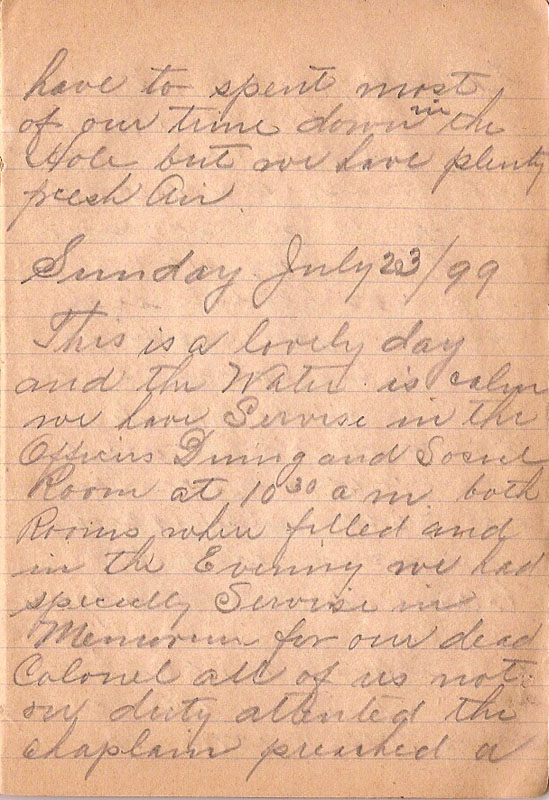 have to spent most
of our time down in the
Hole but we have plenty
fresh Air
Sunday July 23/99
This is a lovely day
and the Water is calm
we have Servise in the
Officers Dining and Social
Room at 10 30 a m. both
Rooms where filled and
in the Evening we had
specielly Servise in
Memorium for our dead
Colonel all of us not
on duty attented the
Chaplain preached a